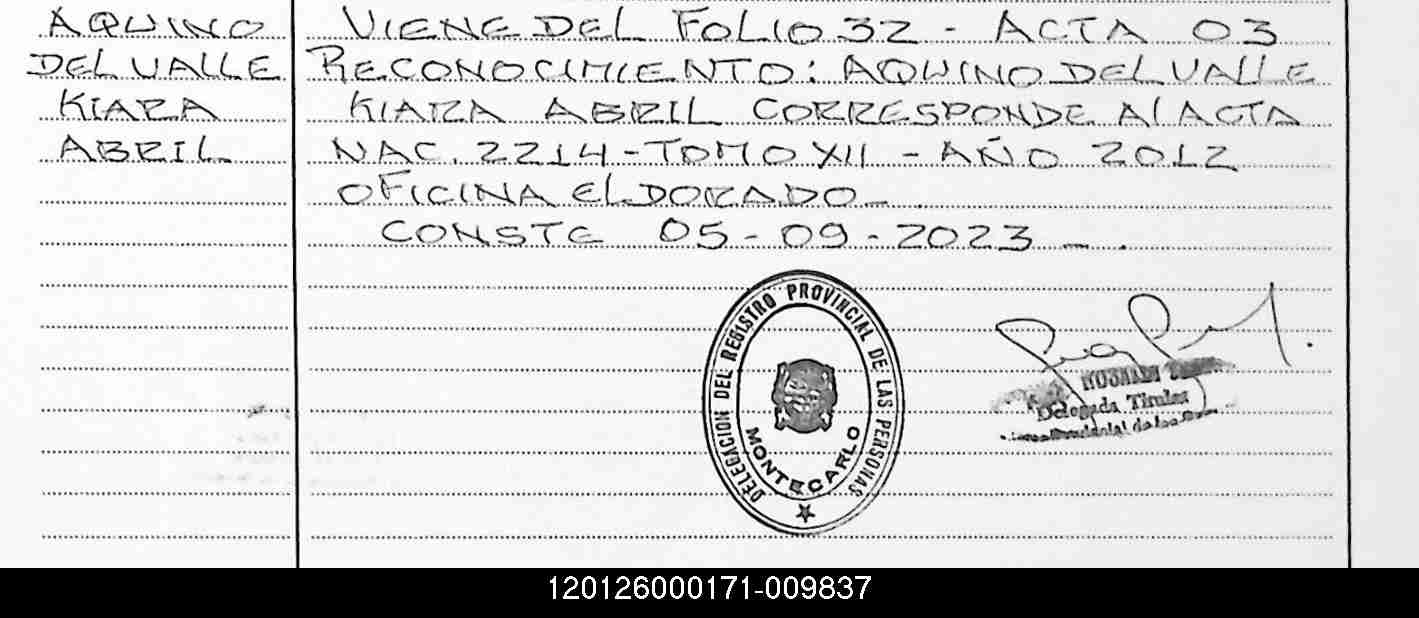 AQUINO
DEL VALLE
KIARA
ABRIL
VIENE DEL FOLIO 32 - ACTA 03
RECONOCIMIENTO: AQUINO DEL VALLE
KIARA ABRIL CORRESPONDE Al ACTA
NAC. 2214 - TOMO XII - AÑO 2012
OFICINA ELDORADO -
CONSTE 05 - 09 - 2023 - .
DELEGACION DEL REGISTRO PROVINCIAL DE LAS PERSONAS
MONTECARLO
Delegada Titular
Provincial de las
120126000171-009837